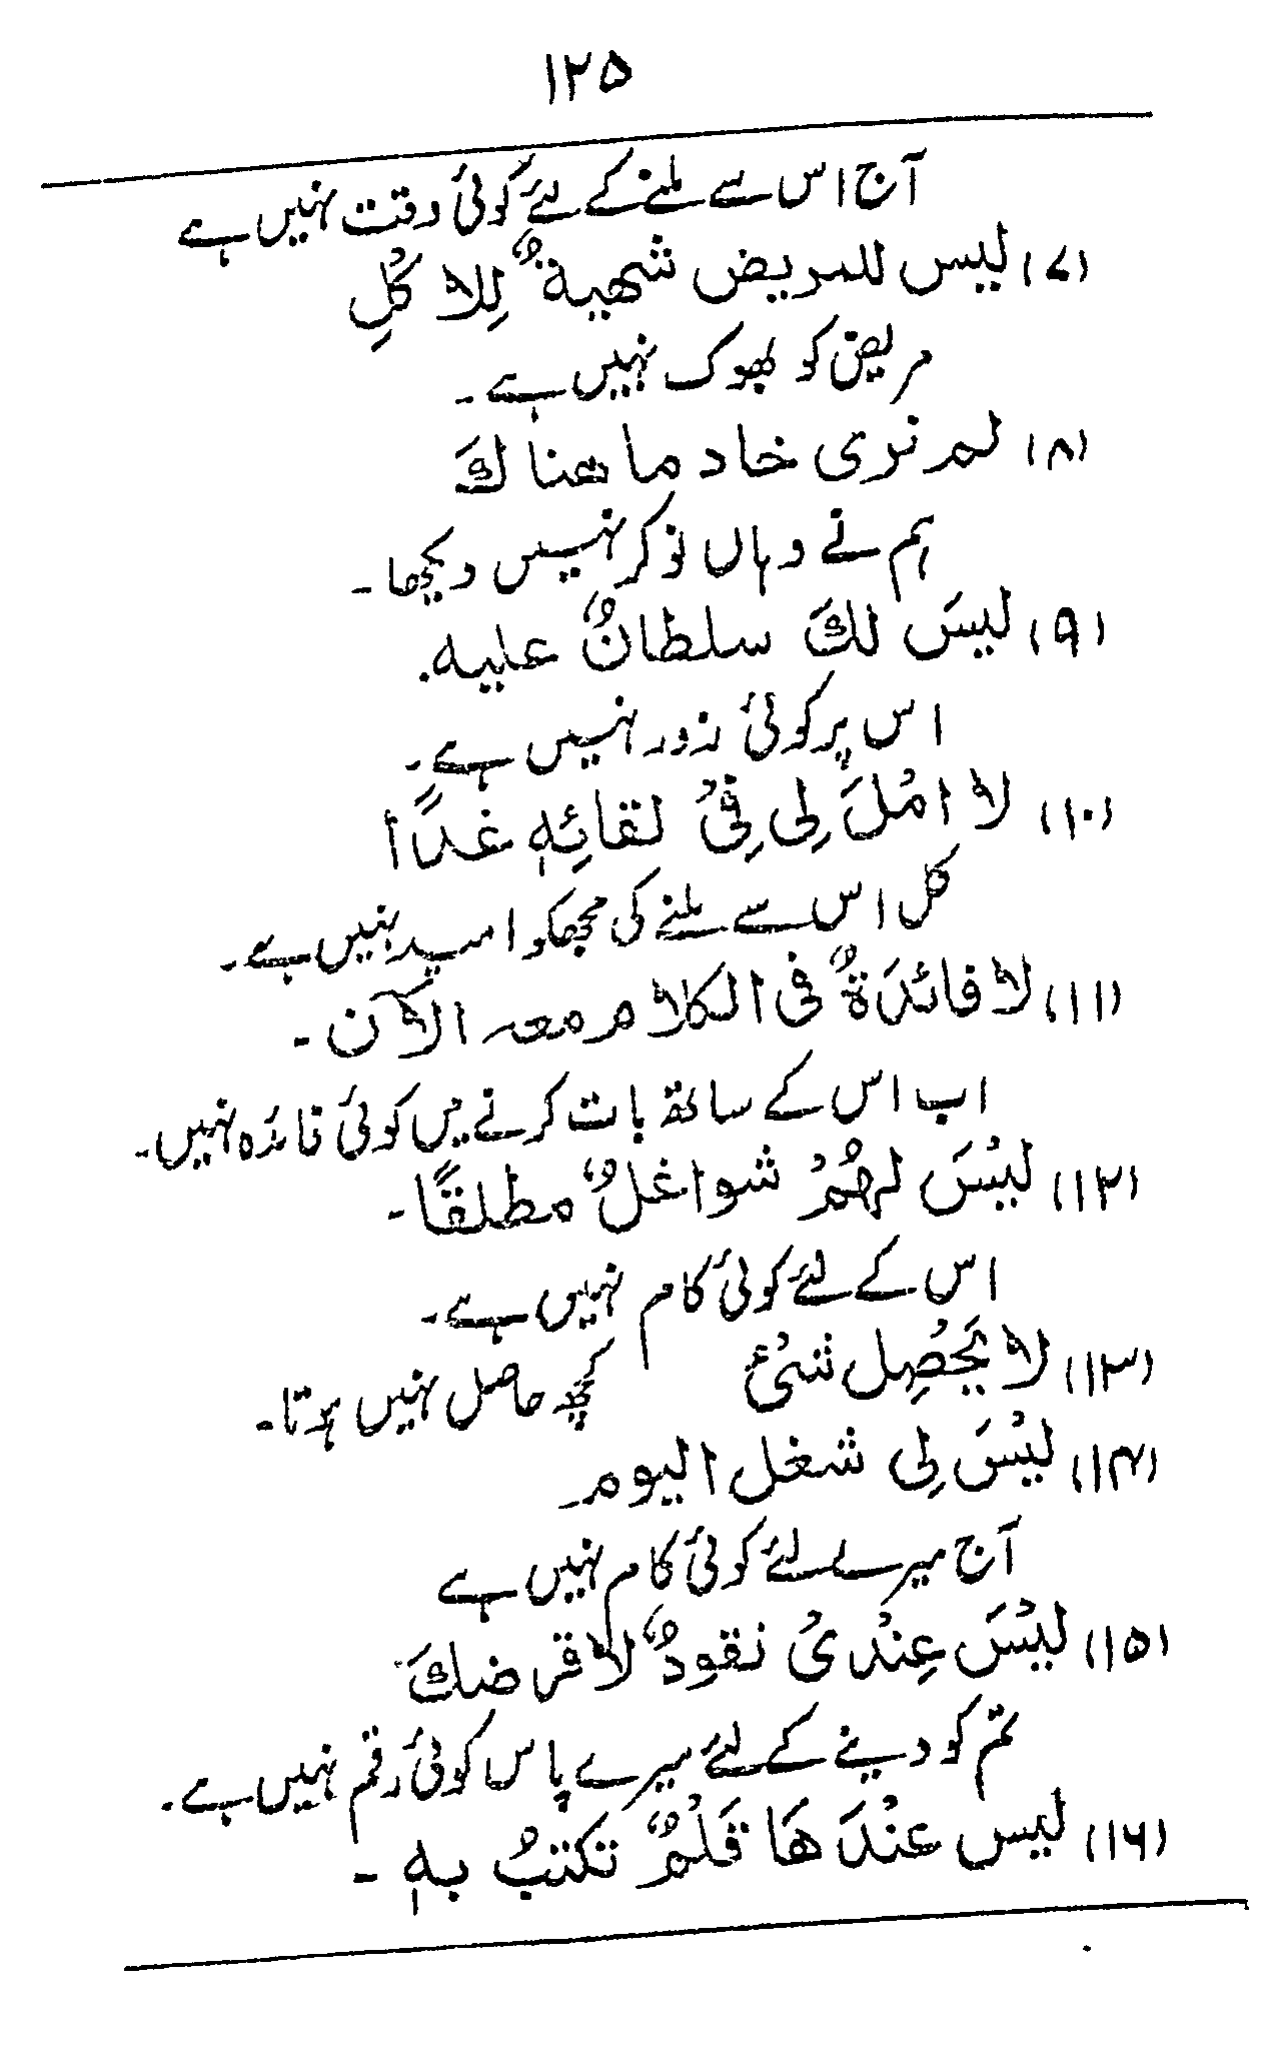 ۱۲۵
آج اس سے ملنے کے لئے کوئی وقت نہیں ہے
(۷) لیس للمریض شهیةٌ لِلاکُلِ
مریض کو بھوک نہیں ہے ۔
(۸) لم نری خادما هناكَ
ہم نے وہاں نوکر نہیں دیکھا ۔
(۹) لیسَ لكَ سلطانٌ علیه.
اس پر کوئی زور نہیں ہے ۔
(۱۰) لا امْلَ لِی فِیْ لقائِهٖ غدًا
کل اس سے ملنے کی مجھکو امید نہیں ہے ۔
(۱۱) لا فائدَةٌ فی الکلام معه الآن ۔
اب اس کے ساتھ بات کرنے میں کوئی فائدہ نہیں ۔
(۱۲) لیْسَ لهُمْ شواغلٌ مطلقًا ۔
اس کے لئے کوئی کام نہیں ہے ۔
(۱۳) لا یَحْصُلِ شیْءٌ کچھ حاصل نہیں ہوتا ۔
(۱۴) لیْسَ لِی شغل الیوم ۔
آج میرے لئے کوئی کام نہیں ہے
(۱۵) لیْسَ عِنْدیْ نقودٌ لاقرضكَ
تم کو دینے کے لئے میرے پاس کوئی رقم نہیں ہے ۔
(۱۶) لیس عِنْدَهَا قَلَمٌ تکتبُ بهٖ ۔